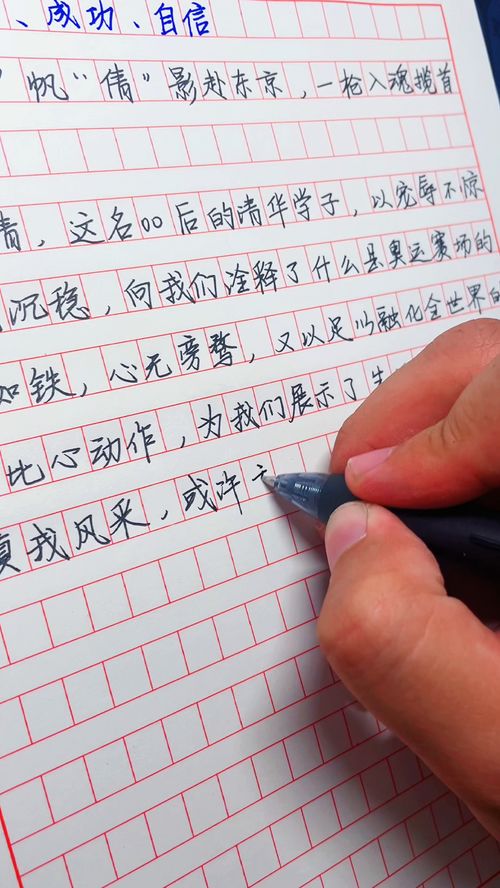 、成功、自信
”帆“倩”影赴东京，一枪入魂揽首
倩，这名00后的清华学子，以宠辱不惊
沉稳，向我们诠释了什么是奥运赛场的
如铁，心无旁骛，又以足以融化全世界的
比心动作，为我们展示了
真我风采，或许